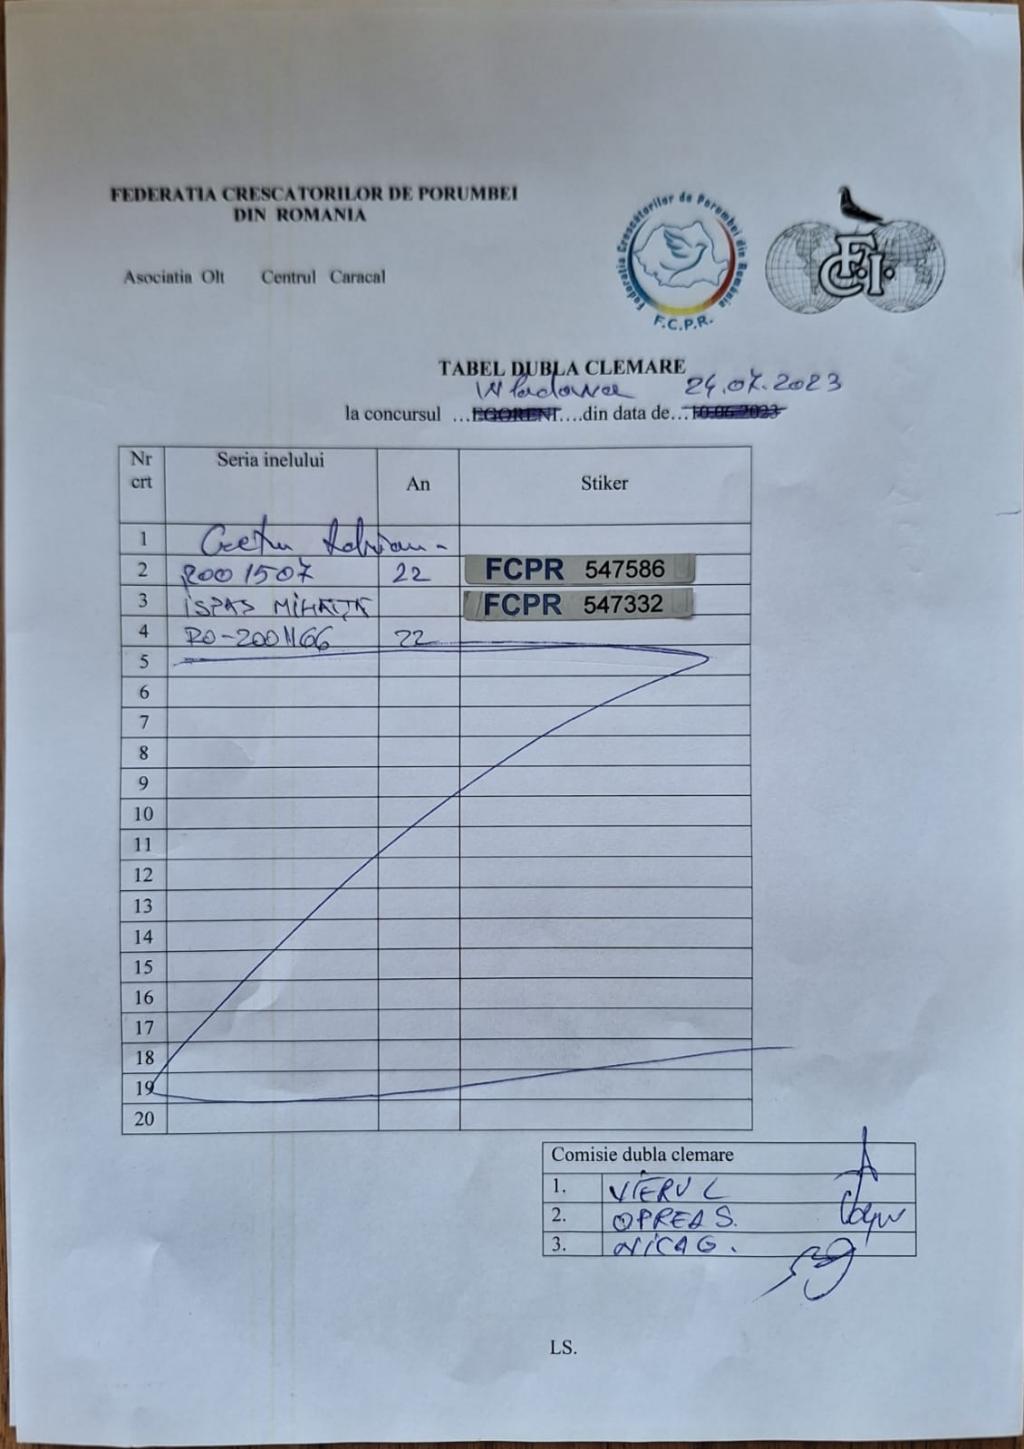 FEDERATIA CRESCATORILOR DE PORUMBEI
DIN ROMANIA
Federatia Crescatorilor de Porumbei din România
F.C.P.R.
F.C.I.
Asociatia Olt Centrul Caracal
TABEL DUBLA CLEMARE
Wlodawa 24.07.2023
la concursul ...EGORENI....din data de...10.06.2023
Nr crt Seria inelului An Stiker
1 Cretu Adrian -
2 R001507 22 FCPR 547586
3 ISPAS MIHAITA FCPR 547332
4 RO-2001166 22
5
6
7
8
9
10
11
12
13
14
15
16
17
18
19
20
Comisie dubla clemare
1. VIERU L
2. OPREA S.
3. NICA G.
LS.